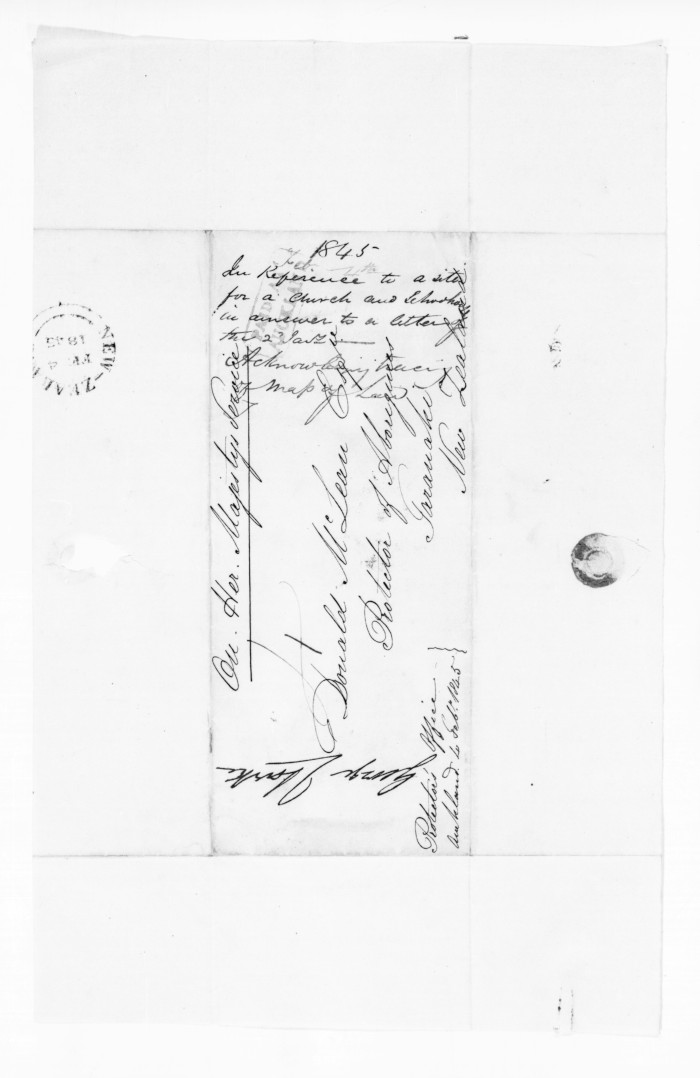 1845
In Reference to a site
for a Church and School
in answer to a letter of
the 2 Jany
Acknow
of Map of Land
On. Her. Majestys Service
Donald McLean Esqre
Protector of Aborigines
Taranaki
New Zealand
George Clarke
Protector's Office
Auckland 4 Feby. 1845
NEW-ZEALA
FE 4
1845
PAID